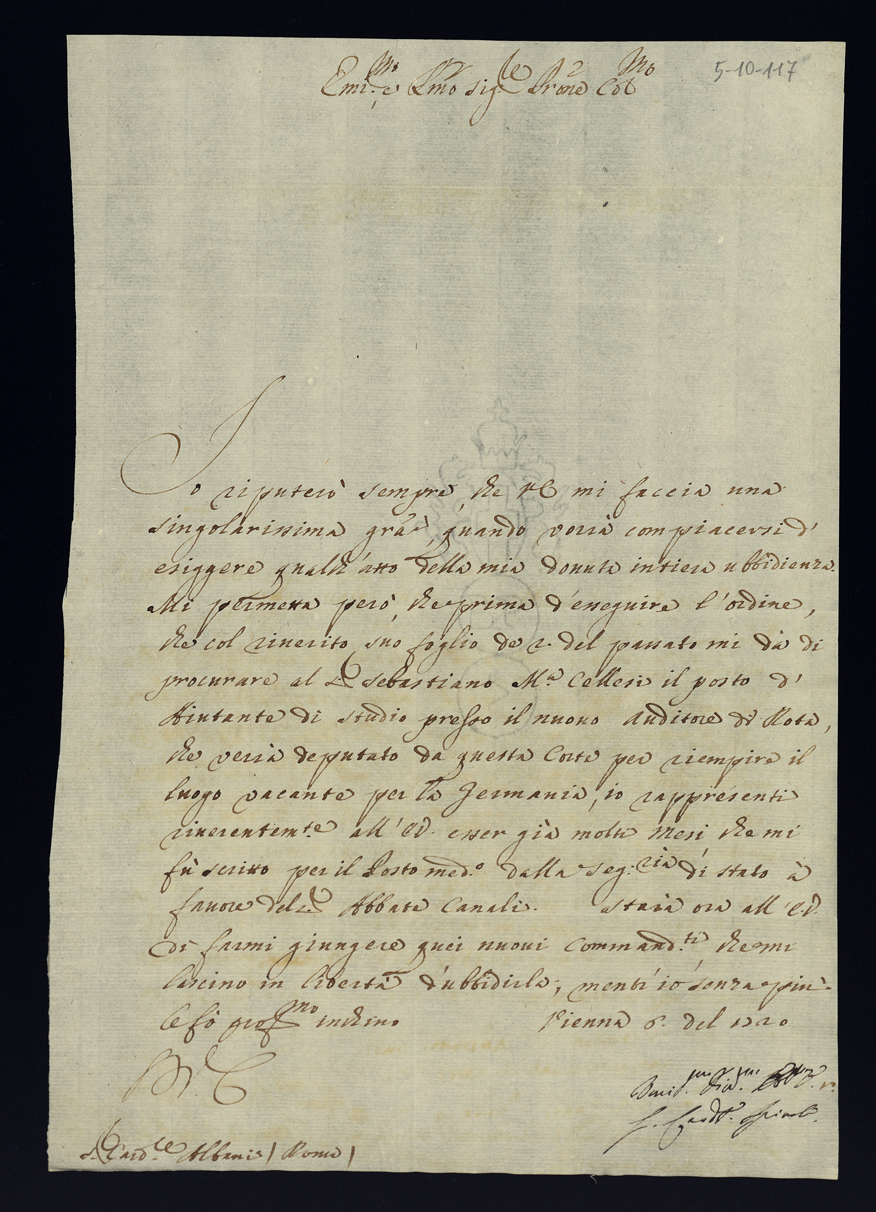 5-10-117
Em.mo e Rmo Sig.re Prone Col.mo
Io riputerò sempre, che VE mi faccia una
singolarissima gra.a, quando vorrà compiacersi d'
esiggere qualch'atto della mia dovuta intiera ubbidienza.
Mi permetta però, che prima d'eseguire l'ordine,
che col riverito suo foglio de 2. del passato mi dà di
procurare al Sebastiano M.a Cellesi il posto d'
Aiutante di studio presso il nuovo Auditore di Rota,
che verrà deputato da questa Corte per riempire il
luogo vacante per la Germania, io rappresenti
riverentem.te all'E.V. esser già molti mesi che mi
fù scritto per il Posto med.o dalla Seg.ria di Stato à
favore del Abbate Canali. Starà ora all'E.V.
di farmi giungere quei nuovi Commandi.ti, che mi
lascino in libertà d'ubbidirla, mentr'io senza più
le fò prof.mo inchino Vienna 6. del 1720
S. Card.le Albani / Roma /